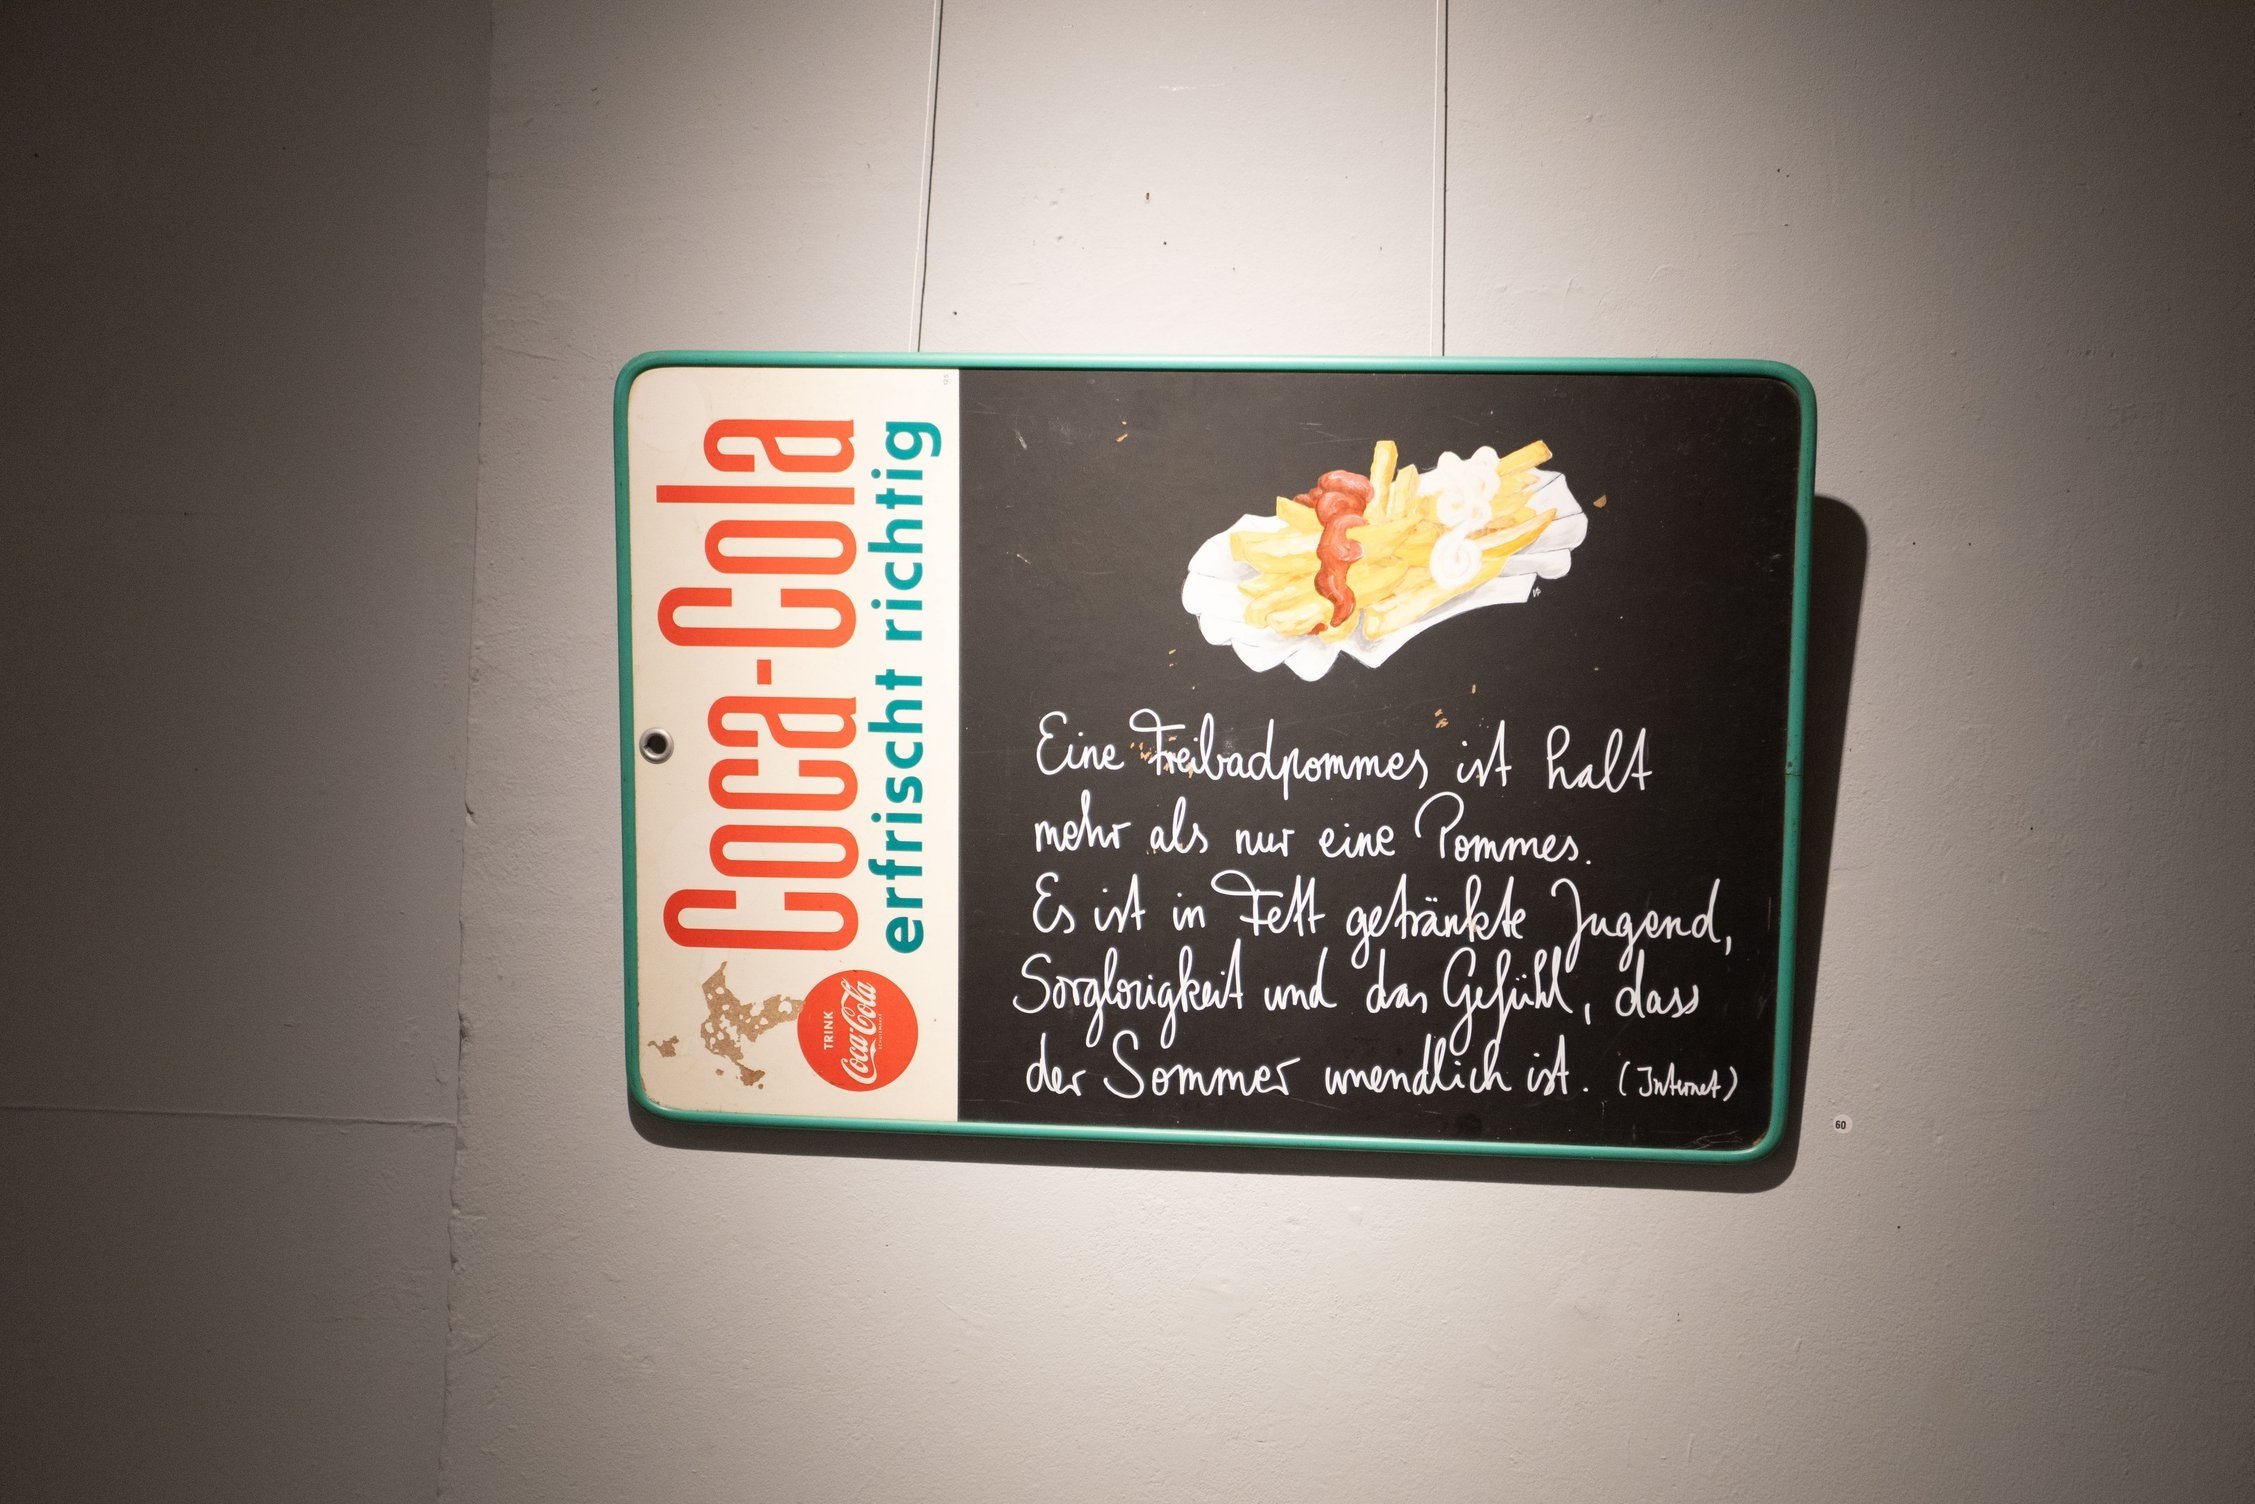 Coca-Cola
erfrischt richtig
TRINK
Coca-Cola
Eine Freibadpommes ist halt
mehr als nur eine Pommes.
Es ist in Fett getränkte Jugend,
Sorglosigkeit und das Gefühl, dass
der Sommer unendlich ist. (Internet)
60